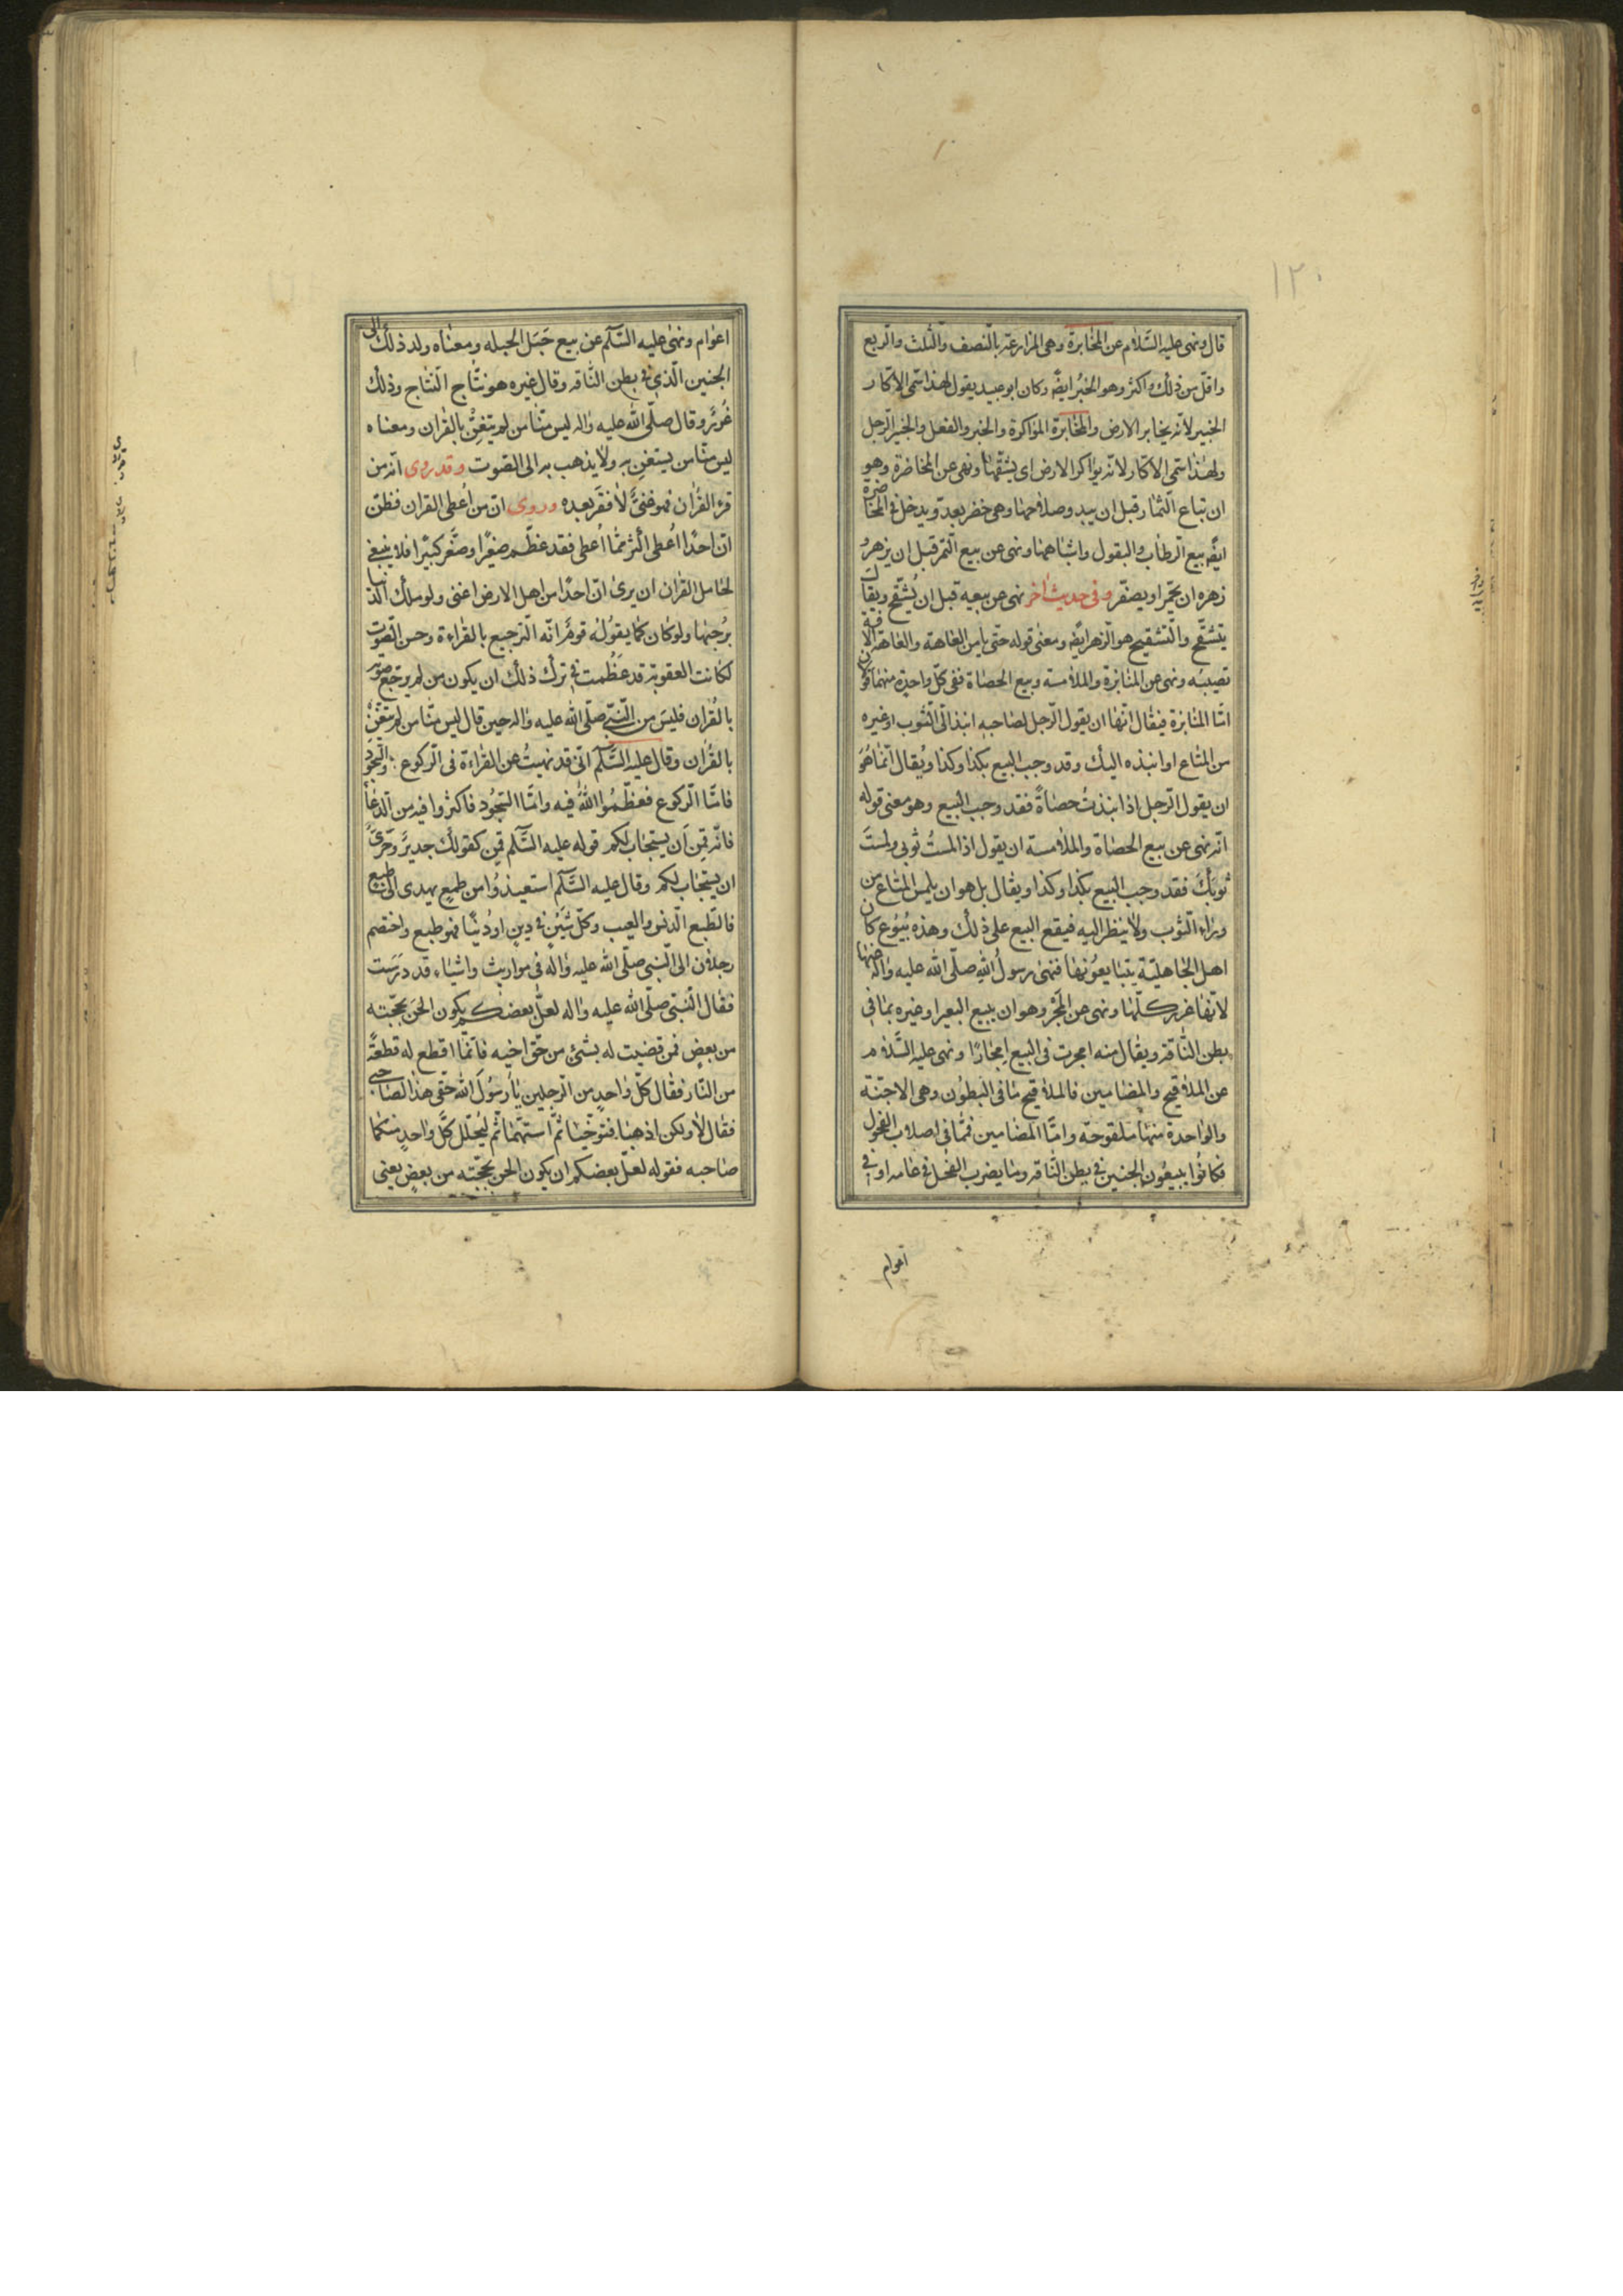 ١٢٠
قال ونهى عليه السّلام عن المخابرة وهى المزارعة بالنّصف والثّلث والرّبع
واقلّ من ذلك واكثر وهو الخبرُ ايضًا وكان ابو عبيد يقول لهذا سمّى الاكّار
الخبير لانّه يخابر الارض والمخابرة المؤاكرة والخبر والفعل والخبير الرّجل
ولهذا سمّى الاكّار لانّه يواكر الارض اى يشقّها ونهى عن المخاضرة وهو
ان تباع الثّمار قبل ان يبدو صلاحها وهى خضر بعدُ ويدخل فى المخاضرة
ايضًا بيع الرطاب والبقول واشباهها ونهى عن بيع التّمر قبل ان يزهو
زهوه ان يحمّر او يصفّر وفى حديث اخر نهى عن بيعه قبل ان يُشقّح ويقال
يتشقّح والتّشقيح هو الزهو ايضًا ومعنى قوله حتّى يأمن العاهة والعاهة الافة
تصيبه ونهى عن المنابذة والملامسة وبيع الحصاة ففى كلّ واحدة منهما قولان
امّا المنابذة فيقال انّها ان يقول الرّجل لصاحبه انبذ الىّ الثّوب او غيره
من المتاع او انبذه اليك وقد وجب البيع بكذا وكذا ويُقال انّما هُوَ
ان يقول الرّجل اذا نبذتُ حصاةً فقد وجب البيع وهو معنى قوله
انّه نهى عن بيع الحصاة والملامسة ان يقول اذا لمستُ ثوبى ولمستَ
ثوبَكَ فقد وجب البيع بكذا وكذا ويقال بل هو ان يلمس المتاع من
وراء الثّوب ولا ينظر اليه فيقع البيع على ذلك وهذه بُيُوع كان
اهل الجاهليّة يتبايعُونها فنهى رسولُ اللّه صلّى اللّه عليه واله عنها
لانّها غرر كلّها ونهى عن المَجْر وهو ان يبيع البعير او غيره بما فى
بطن النّاقة ويقال منه امجرت فى البيع امجارًا ونهى عليه السّلام
عن الملاقيح والمضامين فالملاقيح ما فى البُطُون وهى الاجنّة
والواحدة منها ملقوحة وامّا المضامين فمّا فى اصلاب الفحول
فكانُوا يبيعُون الجنين فى بطن النّاقة وما يضرب الفحل فى عامه او فى
اعوام
اعوام ونهى عليه السّلم عن بيع حَبَل الحبله ومعناه ولد ذلك
الجنين الّذى فى بطن النّاقه وقال غيره هو نتاج النّتاج وذلك
غُررٌ وقال صلّى اللّه عليه واله ليس منّا من لم يتغنّ بالقران ومعناه
ليس منّا من يستغن به ولا يذهب به الى الصّوت وقد روى انّه من
قرء القُران فهو غنىٌّ لا فقرَ بعده وروى انّ من اُعطى القران فظنّ
انّ احدًا اُعطى اكثر ممّا اُعطى فقد عظّم صغيرًا وصَغّر كبيرًا فلا ينبغى
لحامل القران ان يرى انّ احدًا من اهل الارض اغنى ولو ملك الدّنيا
برُحبها ولو كان كما يقولُه قومٌ انّه التّرجيع بالقراءة وحسن الصّوت
لكانت العقوبة قد عَظُمت فى ترك ذلك ان يكون من لم يرجّع صوته
بالقُران فليسَ من النّبىّ صلّى اللّه عليه واله حين قال ليس منّا من لم يتغنّ
بالقُران وقال عليه السّلم انّى قد نهيتُ عن القراءة فى الرّكوع والسّجود
فامّا الرّكوع فعظّمُوا اللّهَ فيه وامّا السّجُود فاكثروا فيه من الدّعاء
فانّه قمِن اَن يستجاب لكم قوله عليه السّلم قمِن كقولك جديرٌ وحَرىّ
ان يستجاب لكم وقال عليه السّلم استعيذُوا من طمعٍ يهدى الى طبع
فالطّبع الدّنس والعيب وكلّ شَيْنٍ فى دينٍ او دُنيًا فهو طبع واختصم
رجلان الى النّبى صلّى اللّه عليه واله فى مواريث واشياء قد دَرَست
فقال النّبىّ صلّى اللّه عليه واله لعلّ بعضكم يكون الحَن بحجّته
من بعضٍ فمن قضيت له بشئ من حَقّ اخيه فانّما اقطع له قطعةً
من النّار فقال كلّ واحدٍ من الرّجلين يا رسُولَ اللّه حقّى هذا لصاحبى
فقال لا ولكن اذهبا فتوخّيا ثمّ استهما ثمّ ليُحلّل كلّ واحدٍ منكما
صاحبه فقوله لعلّ بعضكم ان يكون الحن بحجّته من بعضٍ يعنى